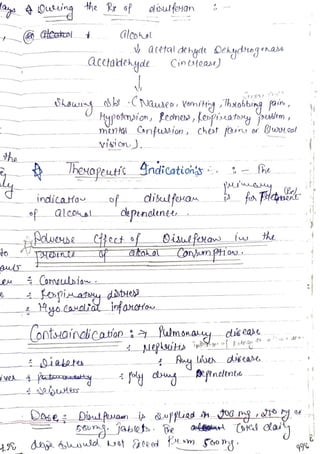 During the Rx of disulferam :-
alcohol
↓ acetaldehyde Dehydrogenase
acetaldehyde (increase)
↓
showing s/s - (Nausea, vomiting, Throbbing pain,
Hypotension, Redness, Respiratory problem,
mental Confussion, chest pain or Blurred
vision).
the
Therapeutic Indication's :- The
primary
indication of disulferam is for
of alcohol dependence.
Adverse Effect of Disulferam in the
to presence of alcohol Consumption.
Convulsion.
Respiratory distress
Myocardial infarction
Contraindication :→ Pulmonary disease
Nephritis
Diabetes Any liver disease.
Poly drug Dependence
Dose: Disulferam is supplied in 200 mg, 250 mg or
500mg. tablets. The Total daily
dose should not Exceed from 500mg.